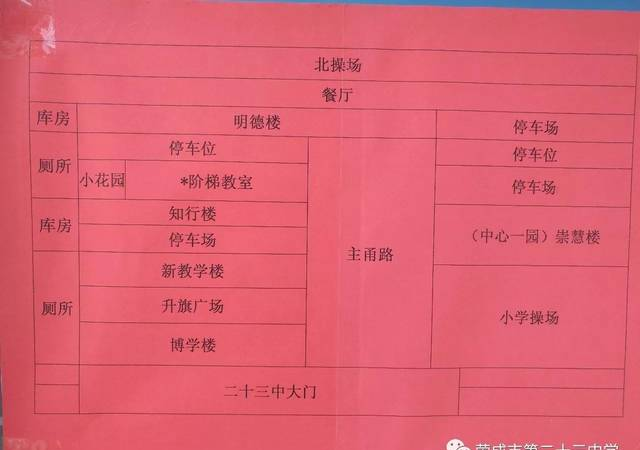 北操场
餐厅
库房 明德楼 停车场
厕所 停车位 停车位
小花园 *阶梯教室 停车场
库房 知行楼 （中心一园）崇慧楼
停车场 主甬路
厕所 新教学楼
升旗广场 小学操场
博学楼
二十三中大门
荣成市第二十三中学